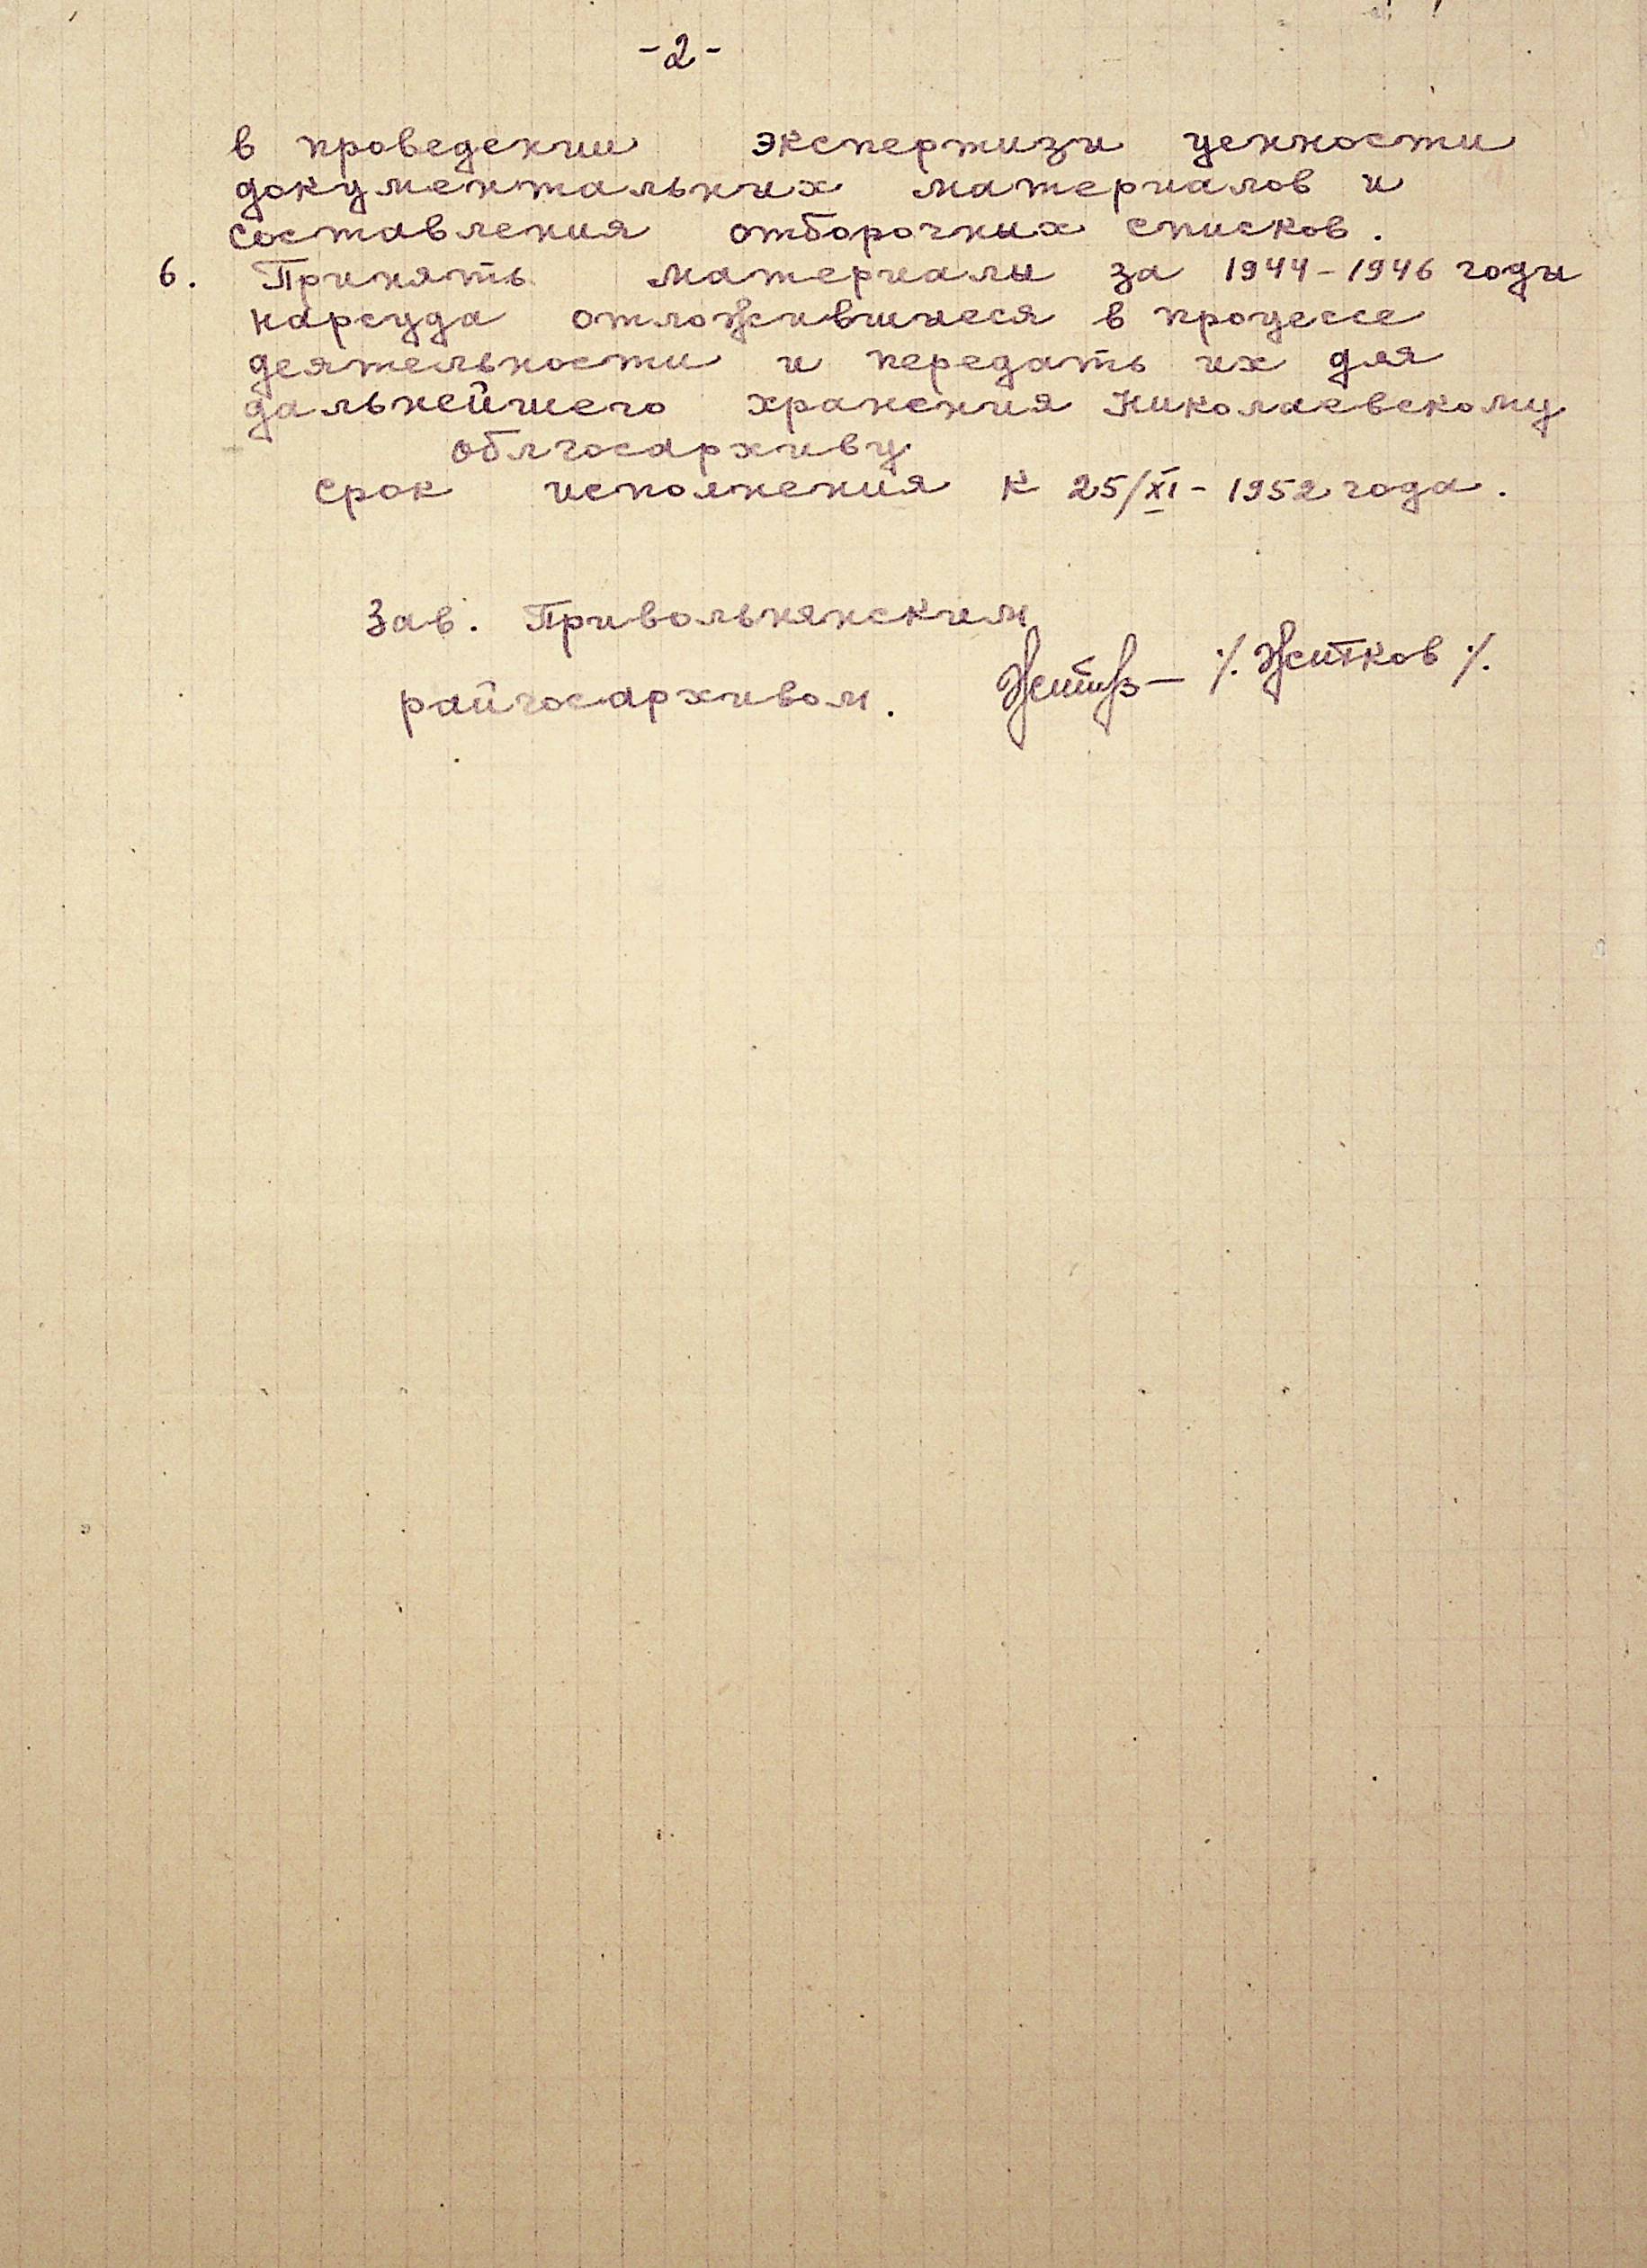 -2-
в проведении экспертизы ценности
документальных материалов и
составления отборочных списков.
6. Принять материалы за 1944-1946 годы
нарсуда отложившиеся в процессе
деятельности и передать их для
дальнейшего хранения Николаевскому
облгосархиву
срок исполнения к 25/XI - 1952 года.
Зав. Привольнянским
райгосархивом. ·/. Житков ·/.